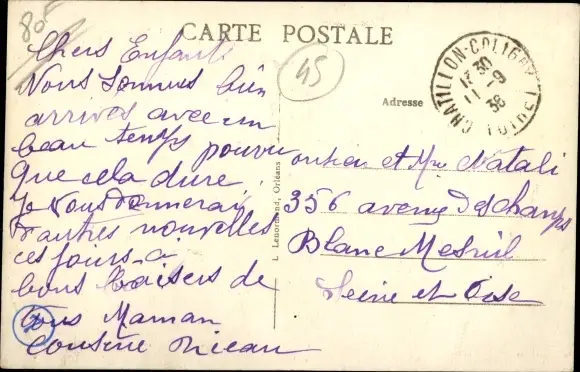 80F
CARTE POSTALE
45
Chers Enfants
Nous sommes bien
arrivés avec un
beau temps pourvu
que cela dure.
Je vous donnerai
d'autres nouvelles
ces jours-ci
bons baisers de
tous Maman
Cousine
Adresse
CHATILLON-COLIGNY
13 30
11 - 9
38
(LOIRET)
L. Lenormand, Orléans
et Mme Natali
356 avenue Deschamps
Blanc Mesnil
Seine et Oise